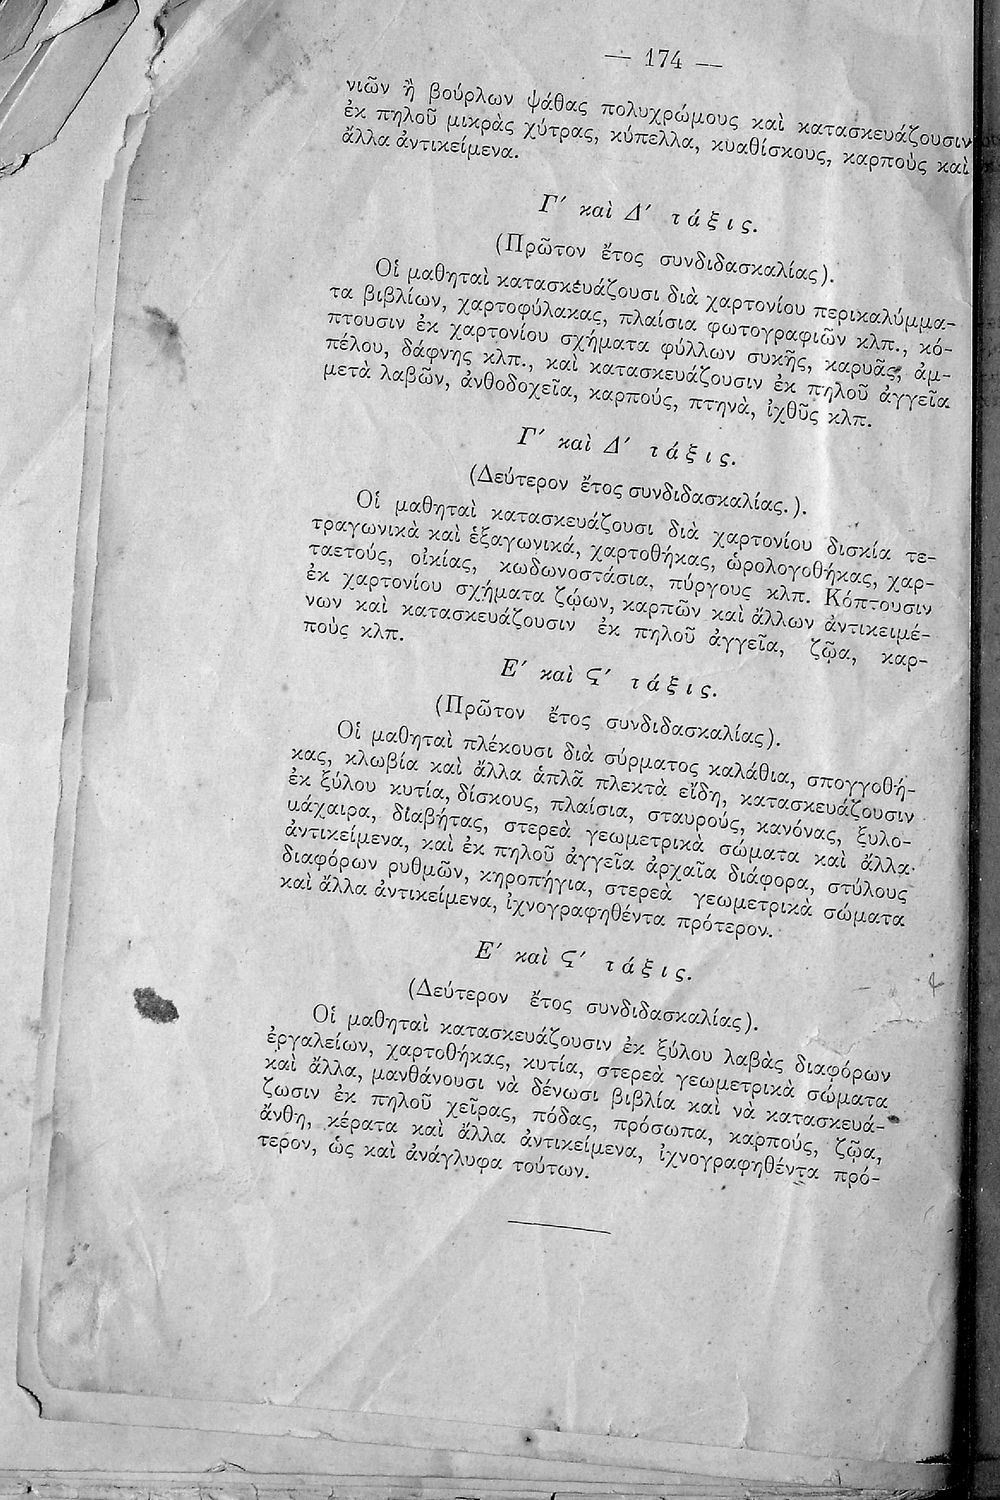 — 174 —
νιῶν ἢ βούρλων ψάθας πολυχρώμους καὶ κατασκευάζουσιν
ἐκ πηλοῦ μικρὰς χύτρας, κύπελλα, κυαθίσκους, καρποὺς καὶ
ἄλλα ἀντικείμενα.
Γ′ καὶ Δ′ τάξις.
(Πρῶτον ἔτος συνδιδασκαλίας).
Οἱ μαθηταὶ κατασκευάζουσι διὰ χαρτονίου περικαλύμμα-
τα βιβλίων, χαρτοφύλακας, πλαίσια φωτογραφιῶν κλπ., κό-
πτουσιν ἐκ χαρτονίου σχήματα φύλλων συκῆς, καρυᾶς, ἀμ-
πέλου, δάφνης κλπ., καὶ κατασκευάζουσιν ἐκ πηλοῦ ἀγγεῖα
μετὰ λαβῶν, ἀνθοδοχεῖα, καρπούς, πτηνὰ, ἰχθῦς κλπ.
Γ′ καὶ Δ′ τάξις.
(Δεύτερον ἔτος συνδιδασκαλίας.).
Οἱ μαθηταὶ κατασκευάζουσι διὰ χαρτονίου δισκία τε-
τραγωνικὰ καὶ ἑξαγωνικά, χαρτοθήκας, ὡρολογοθήκας, χαρ-
ταετούς, οἰκίας, κωδωνοστάσια, πύργους κλπ. Κόπτουσιν
ἐκ χαρτονίου σχήματα ζῴων, καρπῶν καὶ ἄλλων ἀντικειμέ-
νων καὶ κατασκευάζουσιν ἐκ πηλοῦ ἀγγεῖα, ζῷα, καρ-
ποὺς κλπ.
Ε′ καὶ Ϛ′ τάξις.
(Πρῶτον ἔτος συνδιδασκαλίας).
Οἱ μαθηταὶ πλέκουσι διὰ σύρματος καλάθια, σπογγοθή-
κας, κλωβία καὶ ἄλλα ἁπλᾶ πλεκτὰ εἴδη, κατασκευάζουσιν
ἐκ ξύλου κυτία, δίσκους, πλαίσια, σταυρούς, κανόνας, ξυλο-
μάχαιρα, διαβήτας, στερεὰ γεωμετρικὰ σώματα καὶ ἄλλα
ἀντικείμενα, καὶ ἐκ πηλοῦ ἀγγεῖα ἀρχαῖα διάφορα, στύλους
διαφόρων ρυθμῶν, κηροπήγια, στερεὰ γεωμετρικὰ σώματα
καὶ ἄλλα ἀντικείμενα, ἰχνογραφηθέντα πρότερον.
Ε′ καὶ Ϛ′ τάξις.
(Δεύτερον ἔτος συνδιδασκαλίας).
Οἱ μαθηταὶ κατασκευάζουσιν ἐκ ξύλου λαβὰς διαφόρων
ἐργαλείων, χαρτοθήκας, κυτία, στερεὰ γεωμετρικὰ σώματα
καὶ ἄλλα, μανθάνουσι νὰ δένωσι βιβλία καὶ νὰ κατασκευά-
ζωσιν ἐκ πηλοῦ χεῖρας, πόδας, πρόσωπα, καρπούς, ζῷα,
ἄνθη, κέρατα καὶ ἄλλα ἀντικείμενα, ἰχνογραφηθέντα πρό-
τερον, ὡς καὶ ἀνάγλυφα τούτων.